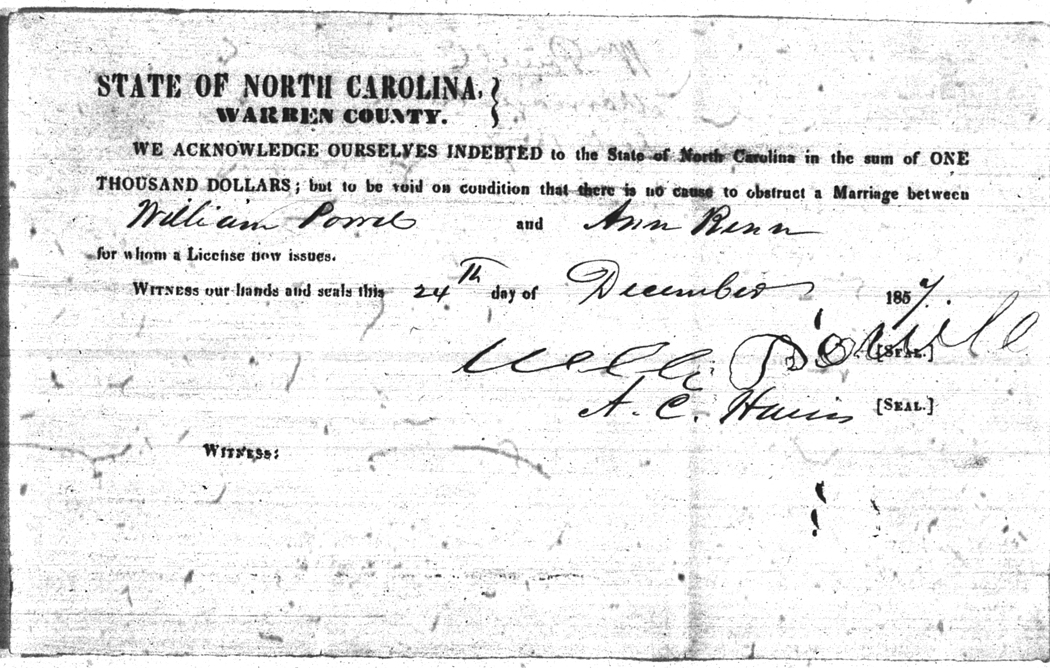 STATE OF NORTH CAROLINA,
WARREN COUNTY.
WE ACKNOWLEDGE OURSELVES INDEBTED to the State of North Carolina in the sum of ONE
THOUSAND DOLLARS; but to be void on condition that there is no cause to obstruct a Marriage between
William Powel and Ann Renn
for whom a License now issues.
WITNESS our hands and seals this 24th day of December 1857.
Powell [SEAL.]
A. C. Harris [SEAL.]
WITNESS: